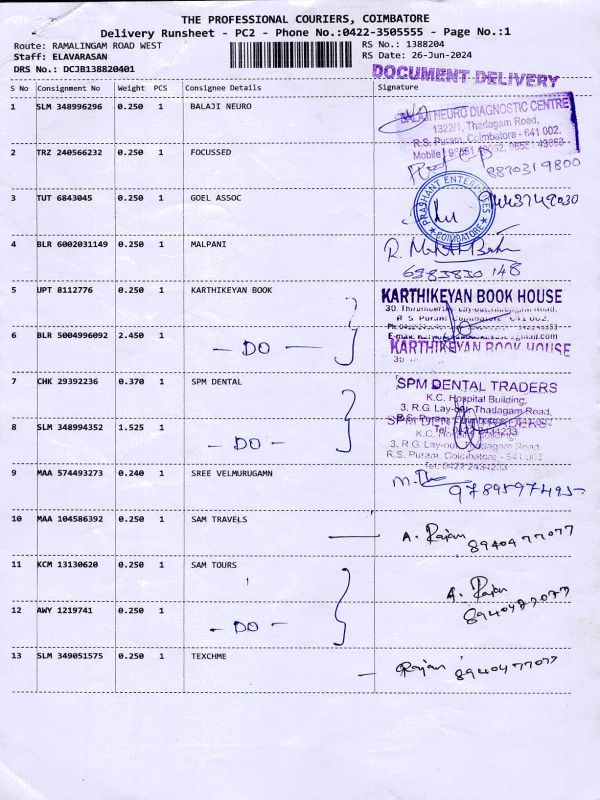 THE PROFESSIONAL COURIERS, COIMBATORE
Delivery Runsheet - PC2 - Phone No.:0422-3505555 - Page No.:1
Route: RAMALINGAM ROAD WEST
RS No.: 1388204
Staff: ELAVARASAN
RS Date: 26-Jun-2024
DRS No.: DCJB138820401
DOCUMENT DELIVERY
S No Consignment No Weight PCS Consignee Details Signature
1 SLM 348996296 0.250 1 BALAJI NEURO
BALAJI NEURO DIAGNOSTIC CENTRE
1322/1, Thadagam Road,
R.S. Puram, Coimbatore - 641 002.
Mobile
2 TRZ 240566232 0.250 1 FOCUSSED
8870319800
3 TUT 6843045 0.250 1 GOEL ASSOC
PRASHANT ENTERPRISES
COIMBATORE
4 BLR 6002031149 0.250 1 MALPANI
6383830 148
5 UPT 8112776 0.250 1 KARTHIKEYAN BOOK
KARTHIKEYAN BOOK HOUSE
6 BLR 5004996092 2.450 1
- DO -
KARTHIKEYAN BOOK HOUSE
7 CHK 29392236 0.370 1 SPM DENTAL
SPM DENTAL TRADERS
K.C. Hospital Building,
3, R.G. Lay-out, Thadagam Road,
8 SLM 348994352 1.525 1
- DO -
K.C. Hospital Building,
3, R.G. Lay-out, Thadagam Road
R.S. Puram, Coimbatore - 641 002
Tel: 0422-2434233
9 MAA 574493273 0.240 1 SREE VELMURUGAMN
9789597495
10 MAA 104586392 0.250 1 SAM TRAVELS
A. Rajan
8940477077
11 KCM 13130620 0.250 1 SAM TOURS
A. Rajan
8940477077
12 AWY 1219741 0.250 1
- DO -
13 SLM 349051575 0.250 1 TEXCHME
Rajan 8940477077